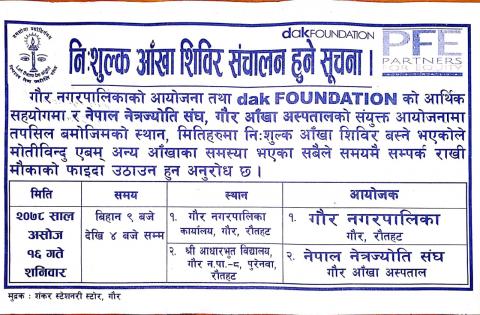 dakFOUNDATION
PFE
PARTNERS
FOR EQUITY
निःशुल्क आँखा शिविर संचालन हुने सूचना ।
गौर नगरपालिकाको आयोजना तथा dak FOUNDATION को आर्थिक
सहयोगमा र नेपाल नेत्रज्योति संघ, गौर आँखा अस्पतालको संयुक्त आयोजनामा
तपसिल बमोजिमको स्थान, मितिहरुमा निःशुल्क आँखा शिविर बस्ने भएकोले
मोतीविन्दु एबम् अन्य आँखाका समस्या भएका सबैले समयमै सम्पर्क राखी
मौकाको फाइदा उठाउन हुन अनुरोध छ ।
मिति समय स्थान आयोजक
२०७८ साल
असोज
१६ गते
शनिवार
बिहान ९ बजे
देखि ४ बजे सम्म
१. गौर नगरपालिका
कार्यालय, गौर, रौतहट
२. श्री आधारभूत विद्यालय,
गौर न.पा.-८, पुरेनवा,
रौतहट
१. गौर नगरपालिका
गौर, रौतहट
२. नेपाल नेत्रज्योति संघ
गौर आँखा अस्पताल
मुद्रक : शंकर स्टेशनरी स्टोर, गौर